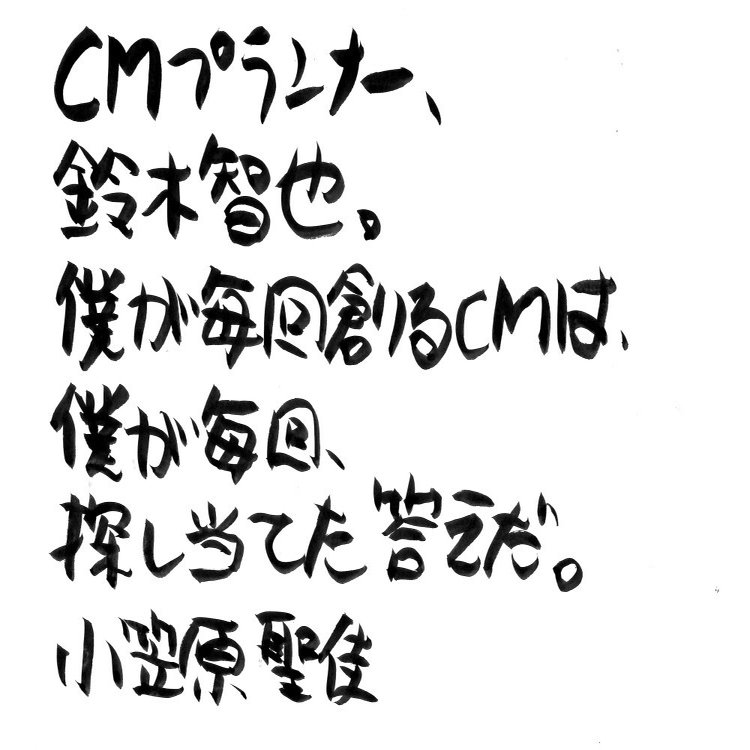 CMプランナー、
鈴木智也。
僕が毎回創るCMは、
僕が毎回、
探し当てた答えだ。
小笠原聖佳